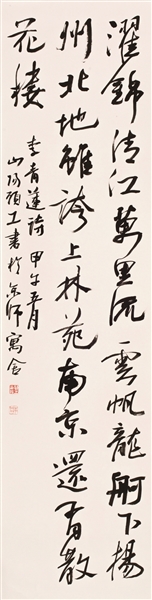 濯錦清江萬里流雲帆龍舸下揚
州北地雖誇上林苑南京還有散
花樓
李青蓮詩 甲午五月
山陽顧工書於京師寓舍